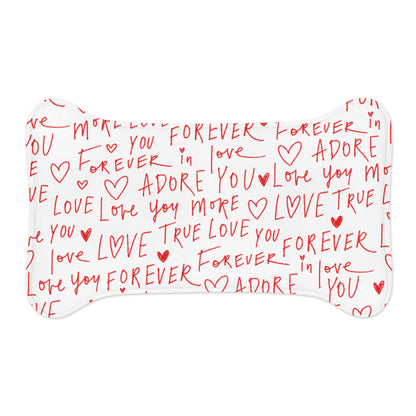 Love MORE LOVE FOREVER FOREVER in
YOU YOU love ADORE
FOREVER in
ADORE YOU Love you MORE
LOVE Love you MORE LOVE TRUE LOVE
ve you LOVE TRUE LOVE YOU FOREVER
love FOREVER in love
Love you FOREVER ADORE YOU